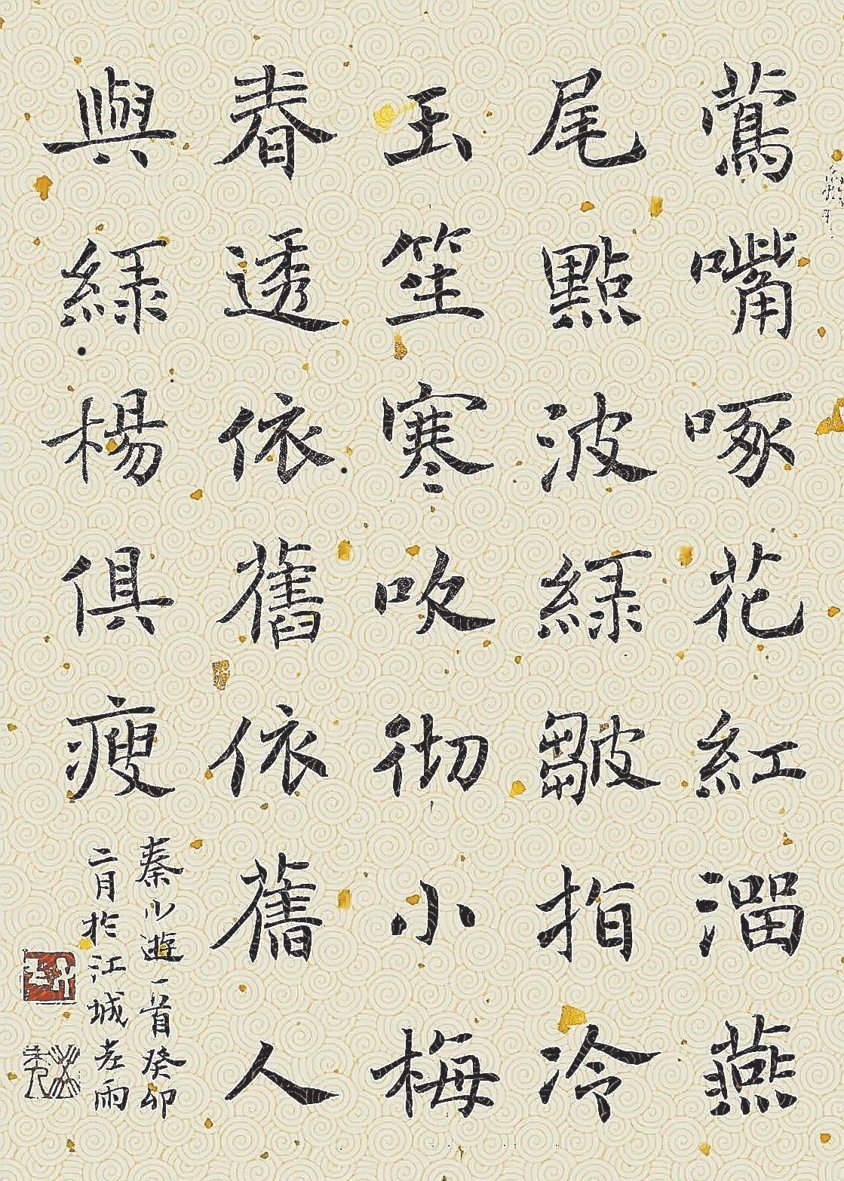 鶯嘴啄花紅溜燕
尾點波緑皺指冷
玉笙寒吹彻小梅
春透依舊依舊人
與緑楊俱瘦
秦少遊一首癸卯
二月於江城老雨